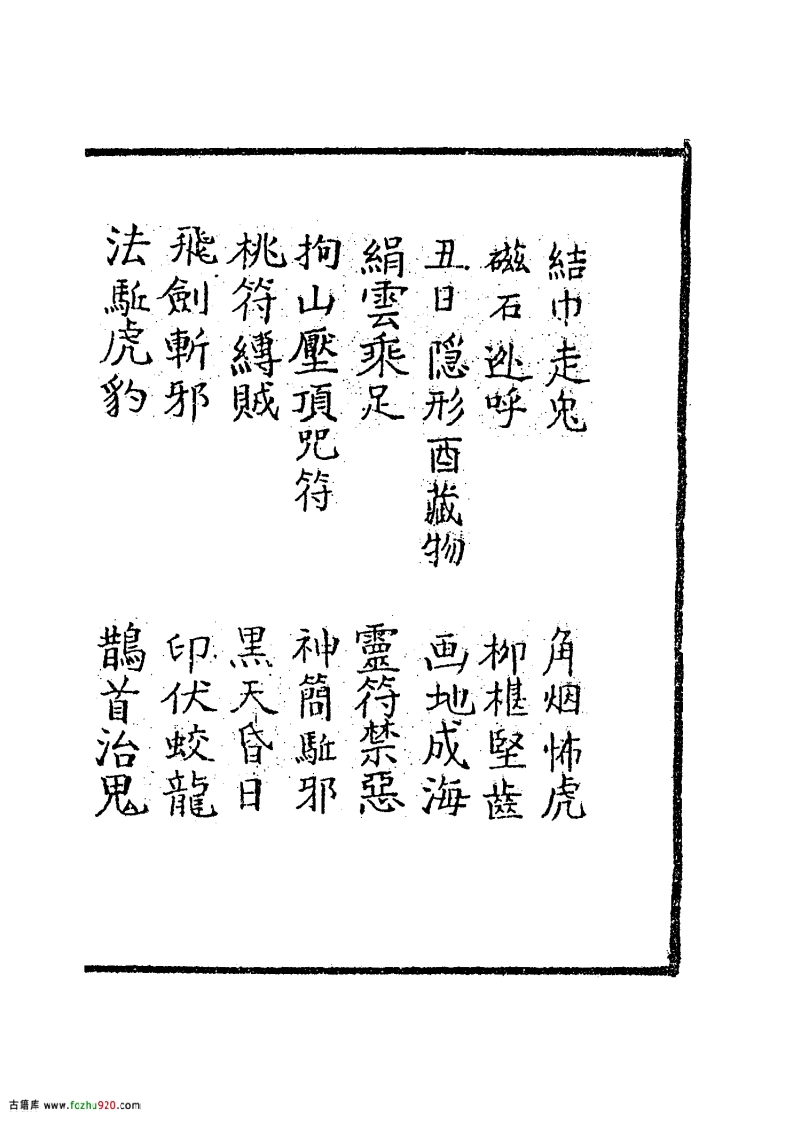 結巾走鬼 角烟怖虎
磁石迯呼 柳椹堅齒
丑日隐形酉藏物 画地成海
絹雲乘足 靈符禁惡
拘山壓頂咒符 神簡駈邪
桃符縛賊 黒天昏日
飛劍斬邪 印伏蛟龍
法駈虎豹 鵲首治鬼
古籍库 www.fozhu920.com